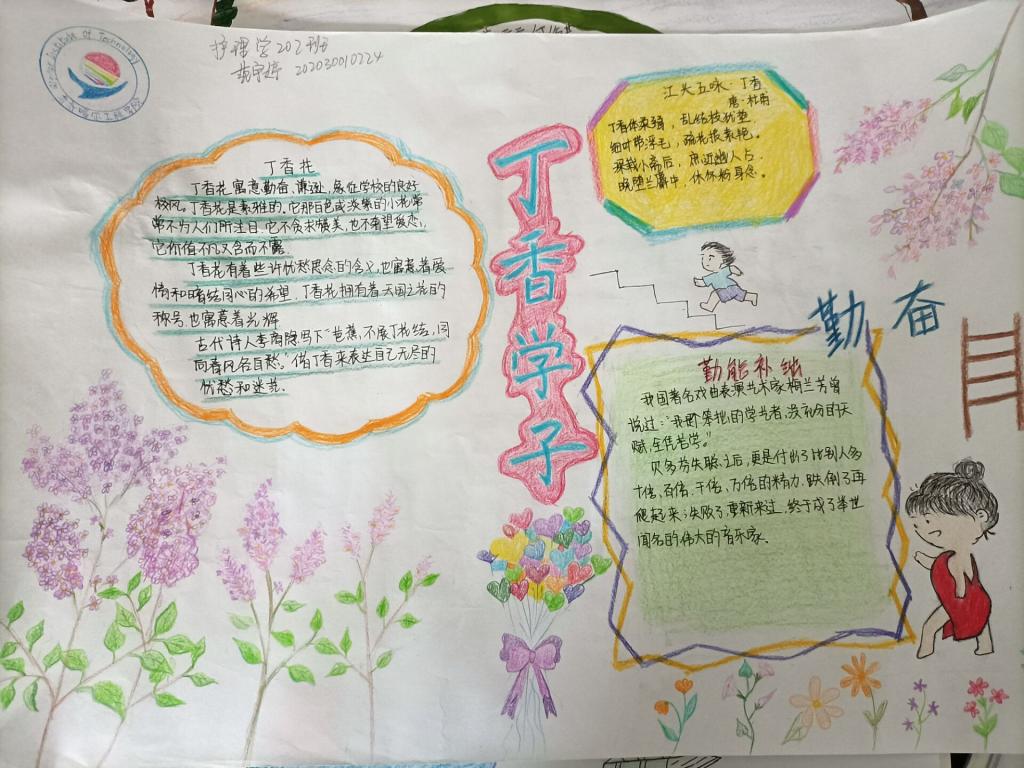 护理学202班
202030010224
丁香学子
丁香花
丁香花寓意勤奋、谦逊,象征学校的良好
校风,丁香花是素雅的,它那白色或淡紫的小花常
常不为人们所注目,它不贪求赞美,也不奢望爱恋,
它价值不凡又含而不露
丁香花有着些许忧愁思念的含义,也寓意着爱
情和暗结同心的希望,丁香花拥有着天国之花的
称号,也寓意着光辉
古代诗人李商隐写下“芭蕉不展丁香结,同
向春风各自愁。”借丁香来表达自己无尽的
忧愁和迷茫.
江头五咏·丁香
唐·杜甫
丁香体柔弱,乱结枝犹垫
细叶带浮毛,疏花披素艳。
深栽小斋后,庶近幽人占.
晚堕兰麝中,休怀粉身念。
勤奋
勤能补拙
我国著名戏曲表演艺术家梅兰芳曾
说过:“我是个笨拙的学艺者,没有充分的天
赋,全凭苦学。”
贝多芬失聪之后,更是付出了比别人多
十倍,百倍,千倍,万倍的精力.跌倒了再
爬起来;失败了重新来过,终于成了举世
闻名的伟大的音乐家.